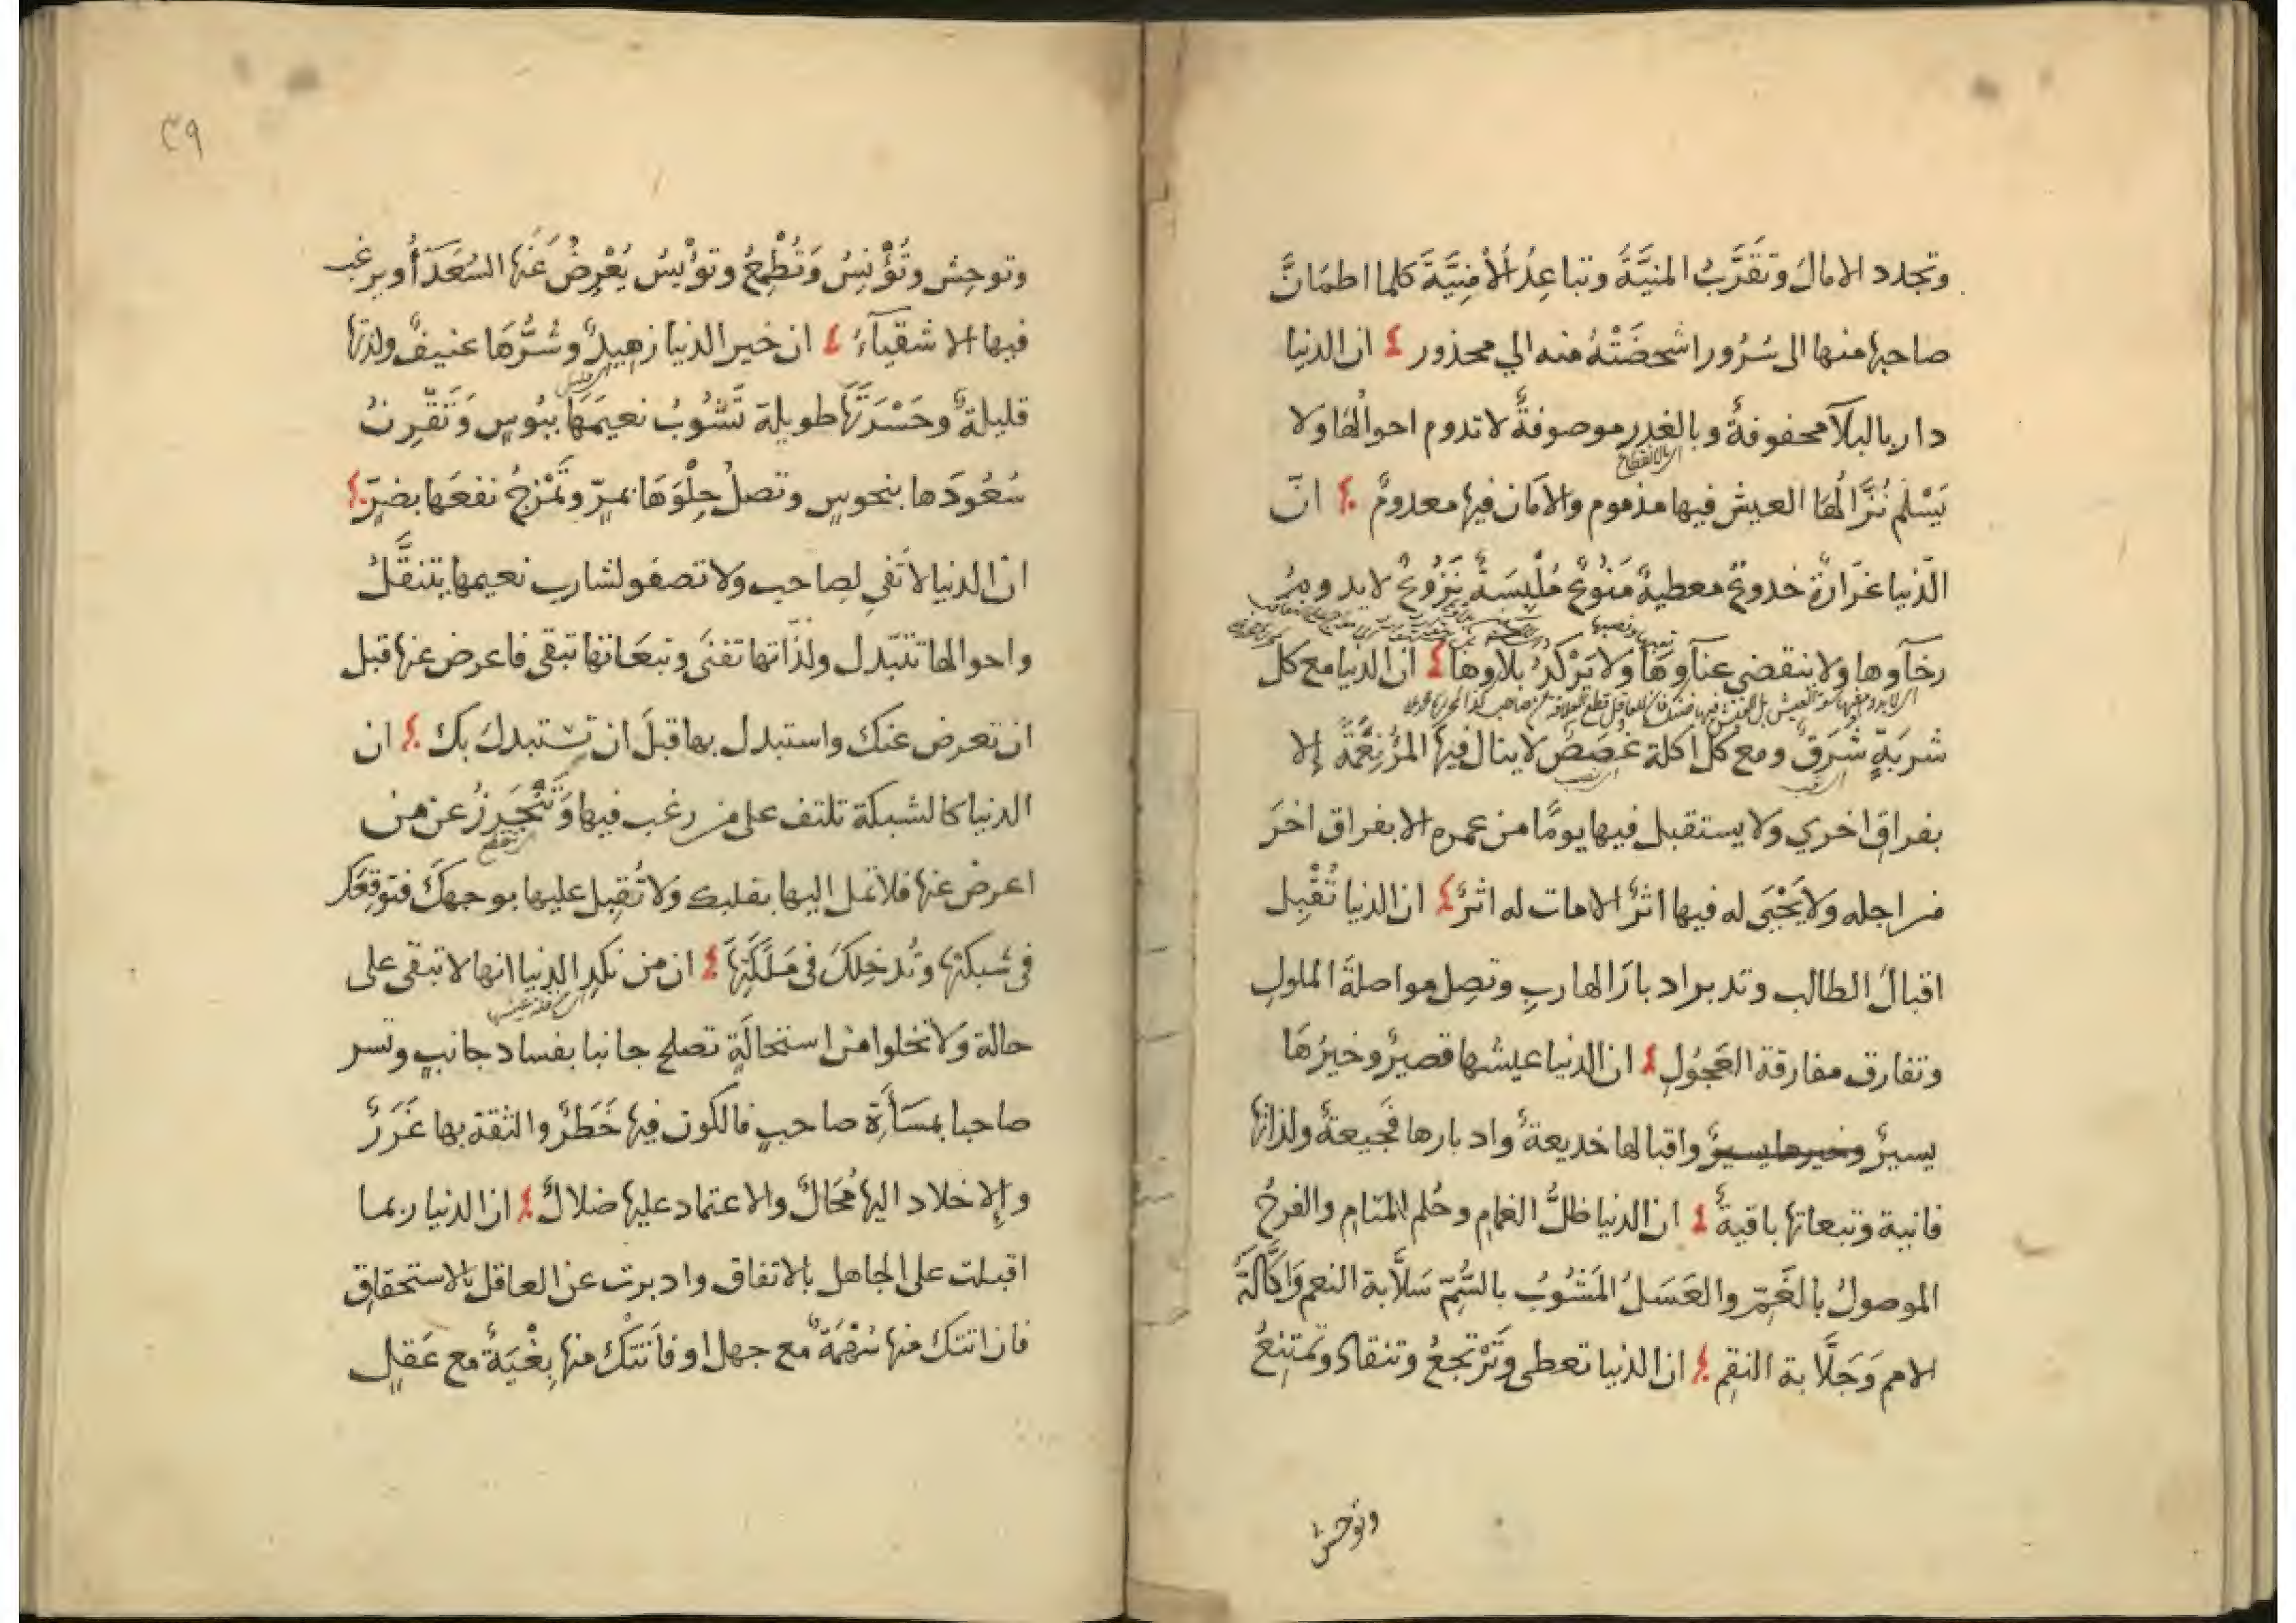 وتجدد الامالَ وتَقَرَّبُ المنيَّةَ وتباعِدُ الأمْنِيَّةَ كلما اطمَانَّ
صاحبها منها الى سُرُور اشخصَتْهُ منه الي محذور ٤ ان الدنيا
دار بالبلآ محفوفةٌ وبالغدر موصوفةٌ لا تدوم احوالُها ولا
اى بالانقطاع
يَسْلَم نُزَّالُهَا العيش فيها مذموم والأمَان فيها معدومٌ ٤ انّ
الدّنيا غرّارةٌ خدوعٌ معطيةٌ مَنُوعٌ مُلْبِسَةٌ نَزُوعٌ لا يدوم
رخآوها ولا ينقضي عنآوهَا ولا يَرْكدُ بلآوها ٤ ان الدنيا مع كل
شربَةٍ شَرَقٌ ومع كل اكلة غصَصٌ لا ينال فيها المرُ نِعْمَةً إلا
بفراقِ اخري ولا يستقبل فيها يومًا من عمره الا بفراق اخرَ
من اجله ولا يَحْيَى له فيها اثرٌ الا مات له اثرٌ ٤ ان الدنيا تُقْبِل
اقبالَ الطالب وتدبر ادبارَ الهاربِ وتصِل مواصلةَ الملولِ
وتفارق مفارقة العَجُولِ ٤ ان الدنيا عيشها قصيرٌ وخيرُهَا
يسيرٌ وخيرها يسيرٌ واقبالها خديعةٌ وادبارها فَجيعةٌ ولذاتها
فانية وتبعاتها باقيةٌ ٤ ان الدنيا ظلُّ الغمامِ وحُلم المَنامِ والفرحُ
الموصولُ بالغَمِّ والعَسَلُ المَشُوبُ بالسُّمِّ سَلَّابة النعمِ وَاكَّالَةَ
الامم وَجَلَّابة النقِم ٤ ان الدنيا تعطى وَتَرْتجعُ وتنقادُ وتمْتنِعُ
وتوحش
٣٩
وتوحِش وتُؤْنِسُ وَتُطْمِعُ وتوْيسُ يُعْرِضُ عَنَها السُعَدَآُ ويرغب
فيها الاشقيآءُ ٤ ان خير الدنيا زهيدٌ وشُرُّهَا عنيفٌ ولذتها
اى قليل
قليلةٌ وحَسْرَتَّهَا طويلة تَشُوبُ نعيمَهَا ببُوسٍ وَتَقْرِنُ
سُعُودَها بنحوسٍ وتصلُ حِلْوَهَا بمرٍّ وتَمْزجُ نفعَها بضرٍّ ٤
ان الدنيا لا تَفي لصاحب ولا تصفو لشارب نعيمها يتنقَّلُ
واحوالها تتبّدل ولذّاتها تفنَى وتبعَاتها تبقى فاعرض عنها قبل
ان تعرض عنك واستبدل بها قبلَ ان تستبدلَ بك ٤ ان
الدنيا كالشبكة تلتف على من رغب فيها وَتَنْحَرِزُ عن من
اعرض عنها فلا تمل اليها بقلبك ولا تُقِبل عليها بوجهكَ فتوقِعَك
فى شبكتها وتُدخِلكَ فى مَلَكَتِهَا ٤ ان من نكدِ الدنيا انها لا تبقى على
حالة ولا تخلوا من استحالَةٍ تصلح جانبا بفساد جانبٍ وتسر
صاحبا بمسَأَةِ صاحبٍ فالكون فيها خَطَرٌ والثقة بها غَرَرٌ
والإخلاد اليها مُحَالٌ والاعتماد عليها ضلالٌ ٤ ان الدنيا ربما
اقبلت على الجاهل بالاتفاق وادبرت عن العاقل بالاستحقاقِ
فان اتتك منها سُهْمَةٌ مع جهل او فاتَتْكَ منها بِغْيَةٌ مع عَقلٍ